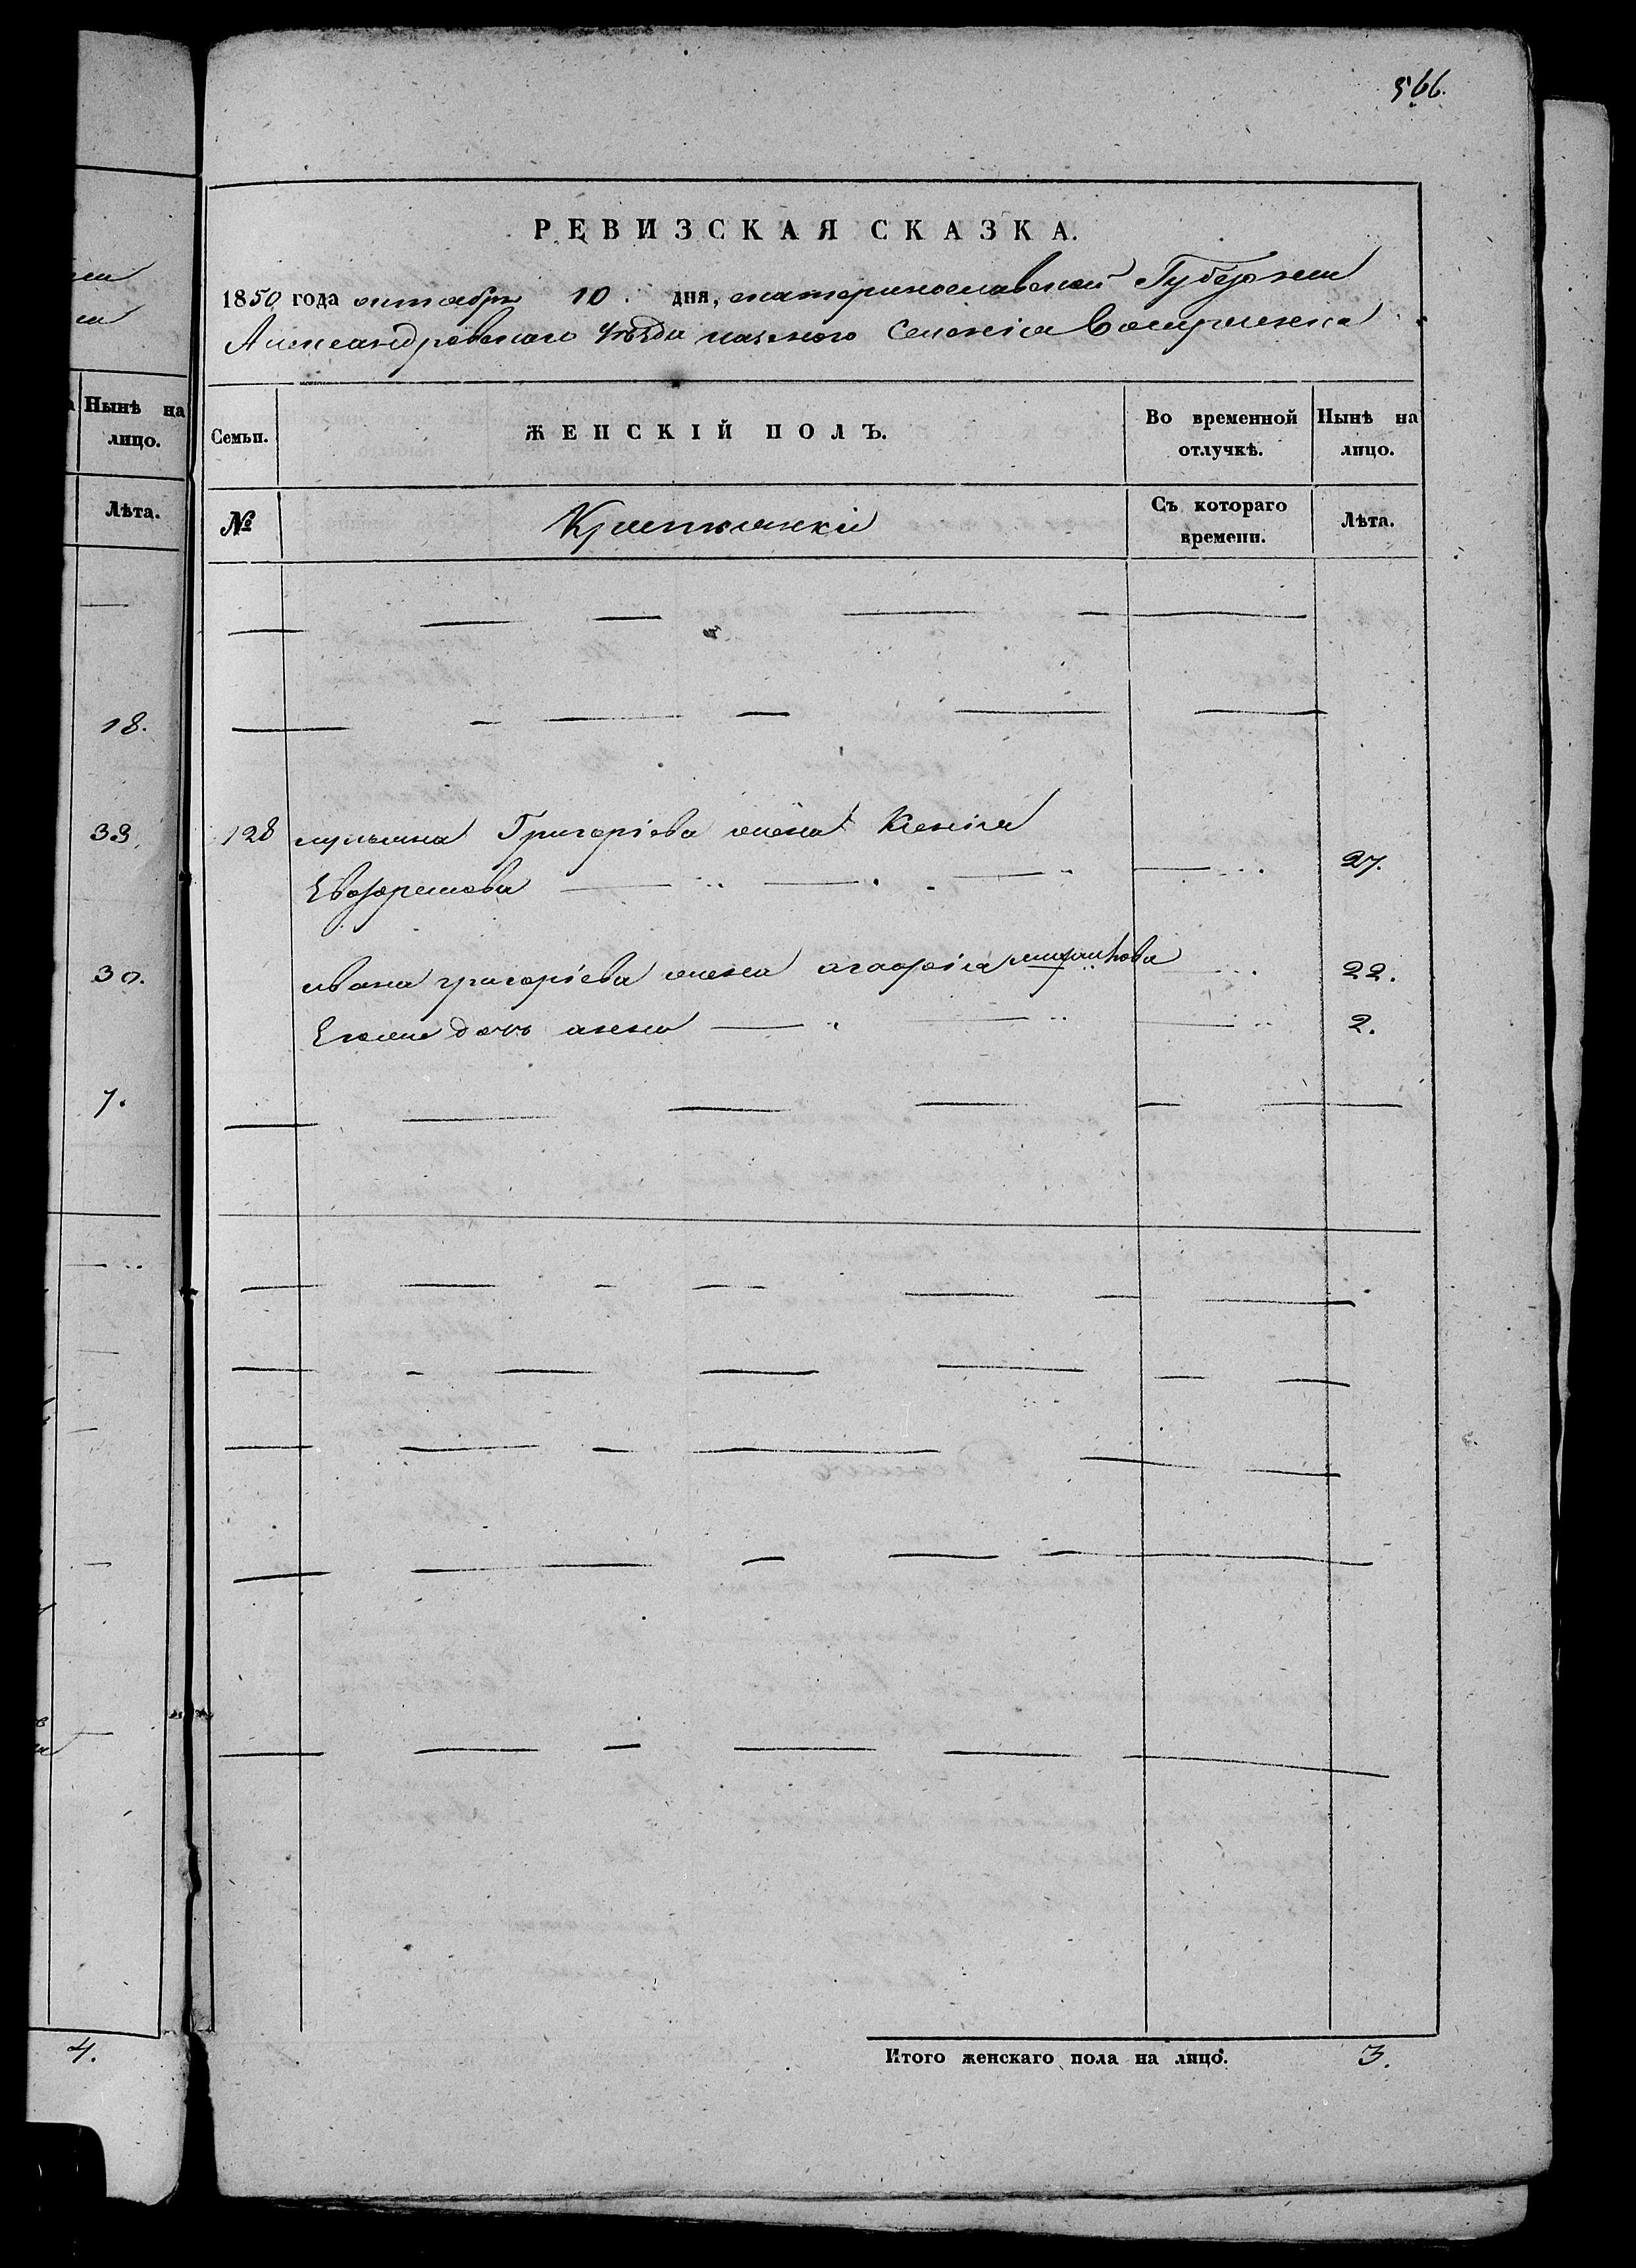 566.
нна
на
Нынѣ на
лицо.
Лѣта.
18.
33.
30.
7.
4.
РЕВИЗСКАЯ СКАЗКА.
1850 года октября 10. дня, екатеринославской Губернии
Александровскаго Уѣзда казенного Селенія
Семьи.
ЖЕНСКІЙ ПОЛЪ.
Во временной
отлучкѣ.
Нынѣ на
лицо.
№
Крестьянки
Съ котораго
времени.
Лѣта.
128 Григоріева жена Ксенія
27.
ивана григоріева жена агафія 22.
Его дочь анна 2.
Итого женскаго пола на лицо. 3.